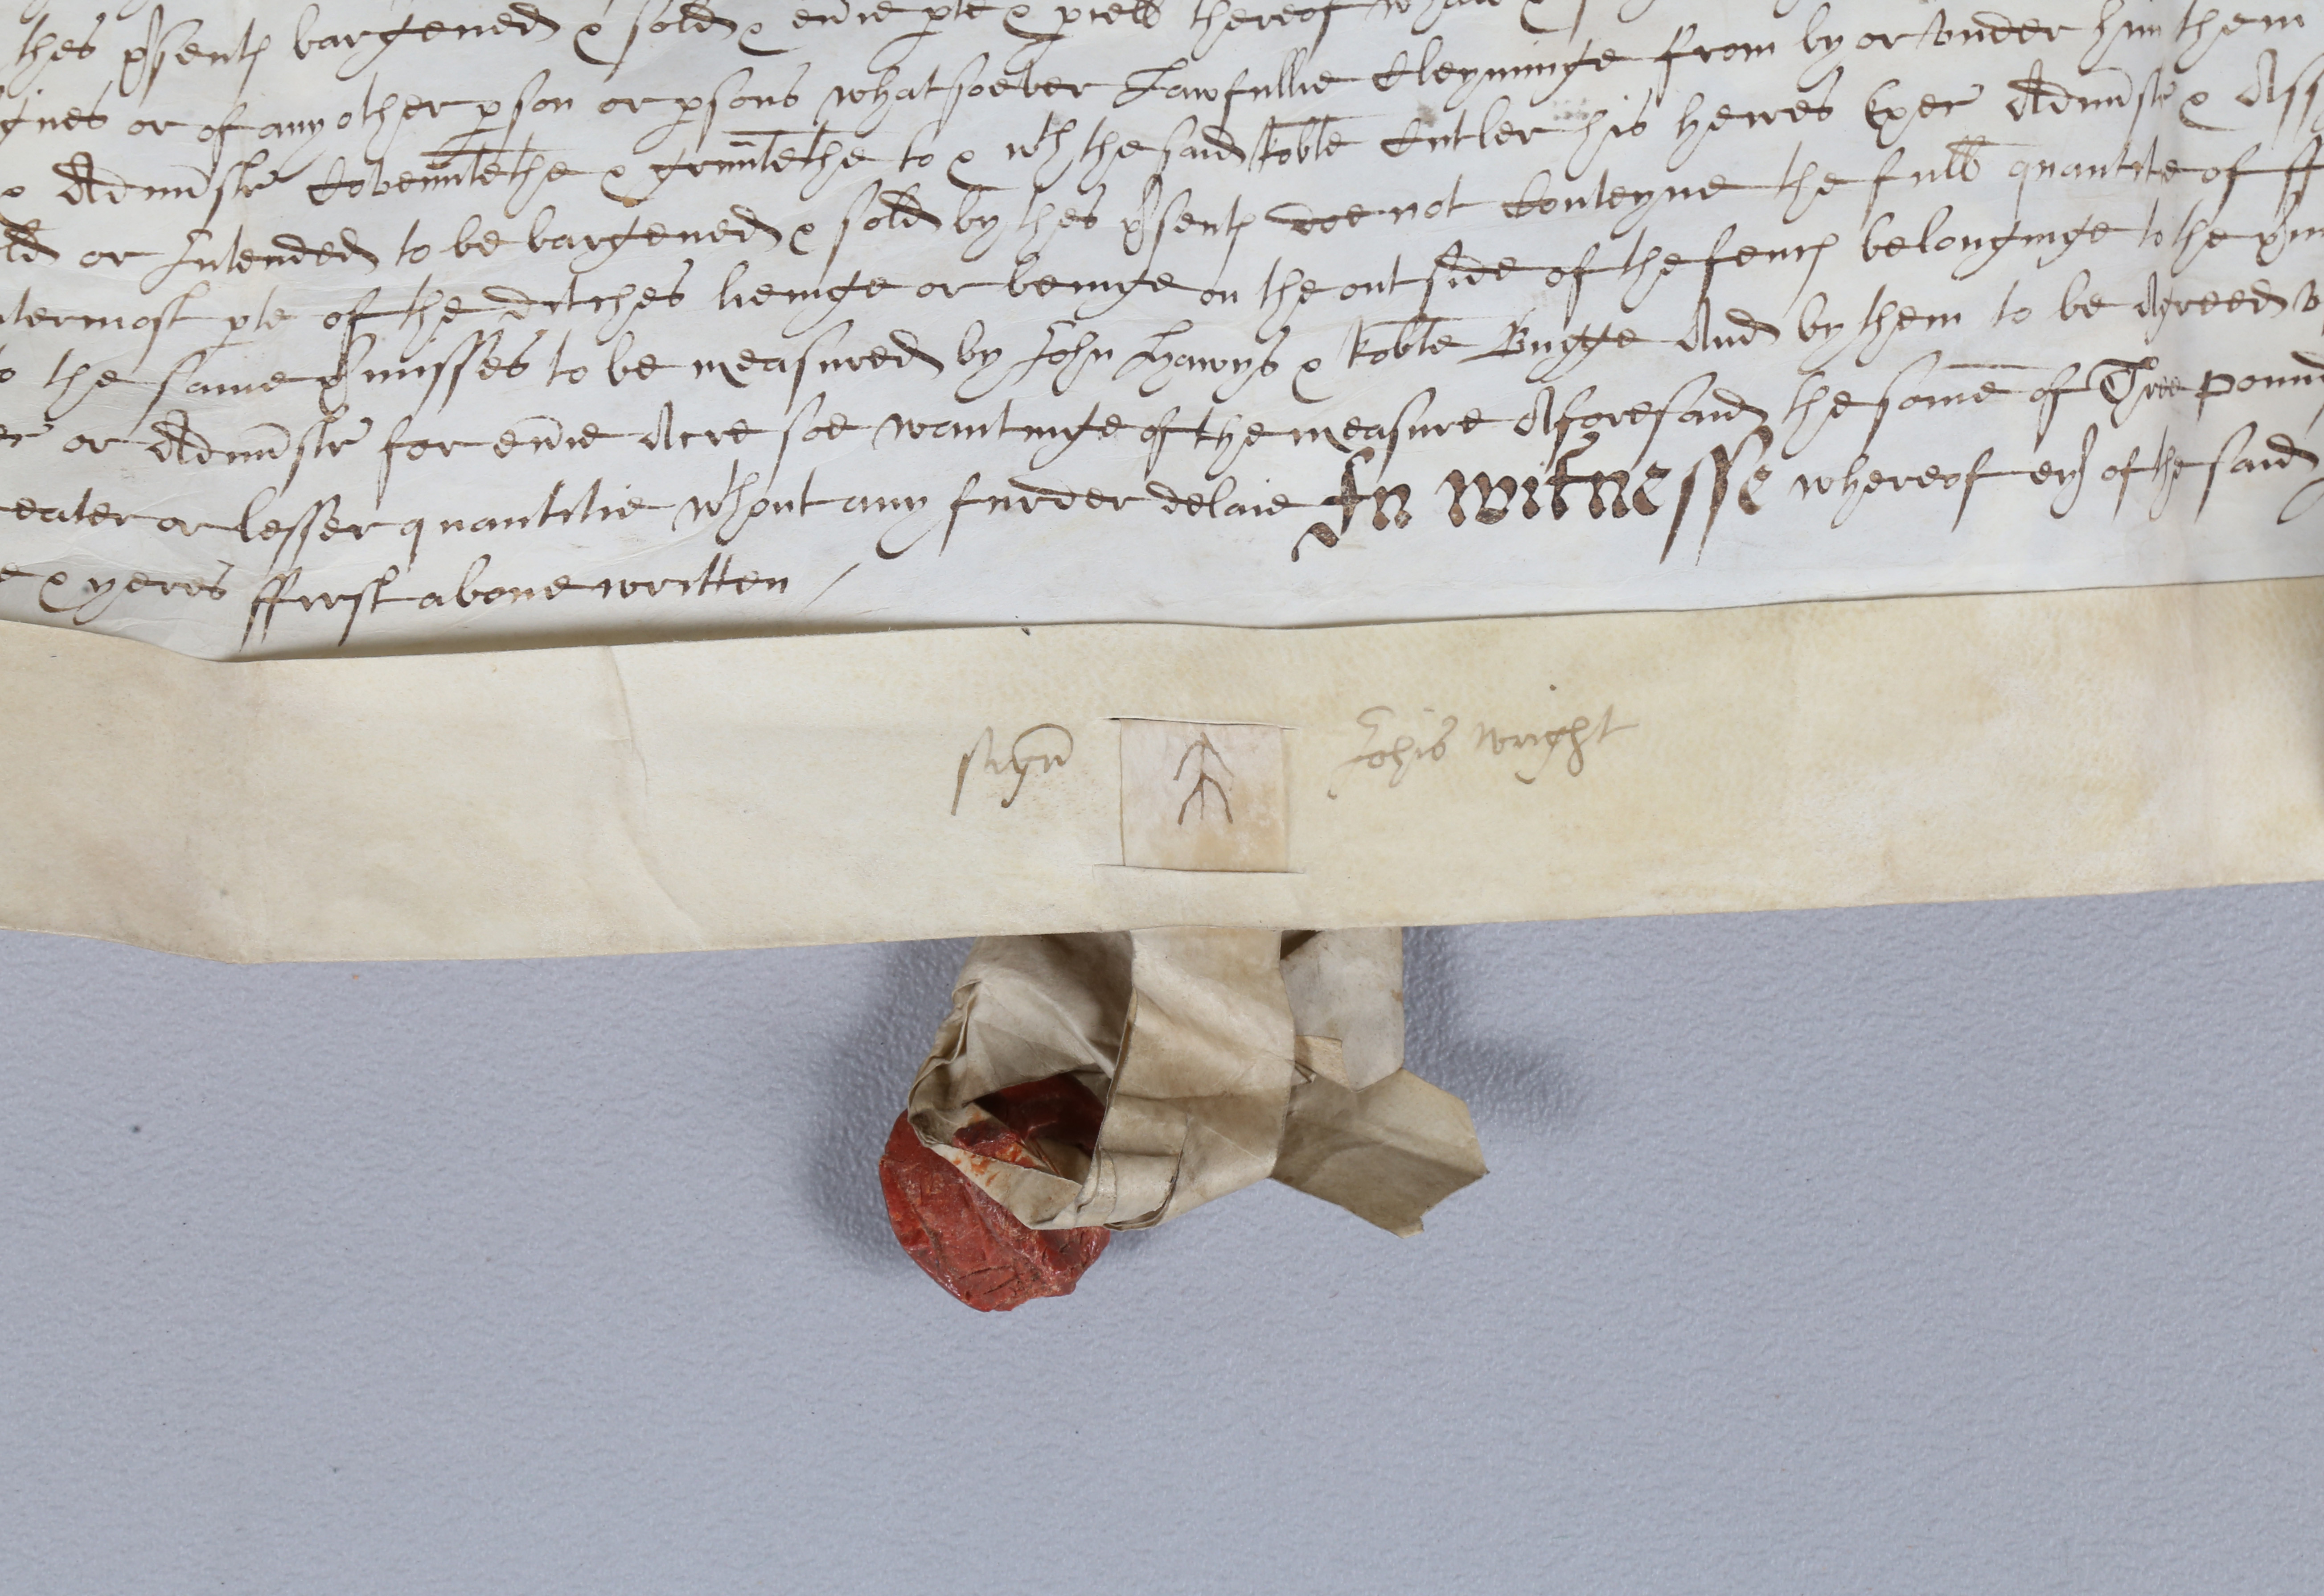 thes p̱sentꝭ bargened & sold & eu̅ie p̱te & p̱cell thereof
gnes or of any other p̱son or p̱sons whatsoever Lawfullie Cleyminge from by or vnder him them
& Adm̅str Coven̅ntethe & grn̅ntethe to & wth the said Robte Cutler his heires Exec Adm̅str & Ass
ld or Intended to be bargened & sold by thes p̱sentꝭ doe not Conteyne the full quantitie of ff
termost p̱te of the ditches lieinge or beinge on the out side of the fencꝭ belonginge to the p̱m
to the same p̱misses to be measured by John Hawys & Robte Bugge And by them to be Agreed v
or Adm̅str for eu̅ie Acre soe wantinge of the measure Aforesaid the som̅e of Three pound
eater or lesser quantitie wthout any furder delaie In witnesse whereof of the said
e & yeres ffirst above written
signū Johis Wright